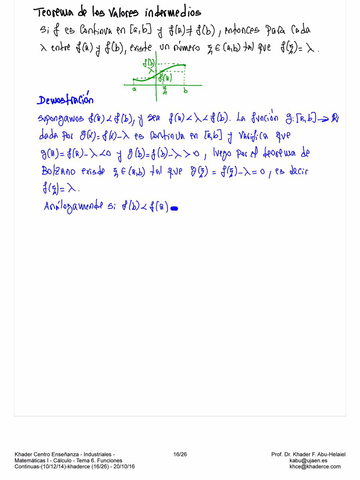 Teorema de los Valores intermedios
Si f es continua en [a,b] y f(a)≠f(b), entonces para cada
λ entre f(a) y f(b), existe un número ξ∈(a,b) tal que f(ξ)=λ.
f(b)
λ
f(a)
a ξ b
Demostración
supongamos f(a)<f(b), y sea f(a)<λ<f(b). La función g:[a,b]→ℝ
dada por g(x)=f(x)-λ es continua en [a,b] y verifica que
g(a)=f(a)-λ<0 y g(b)=f(b)-λ>0, luego por el teorema de
Bolzano existe ξ∈(a,b) tal que g(ξ)=f(ξ)-λ=0, es decir
f(ξ)=λ.
Análogamente si f(b)<f(a)
Khader Centro Enseñanza - Industriales -
Matemáticas I - Cálculo - Tema 6. Funciones
Continuas-(10/12/14)-khaderce (16/26) - 20/10/16
16/26
Prof. Dr. Khader F. Abu-Helaiel
kabu@ujaen.es
khce@khaderce.com